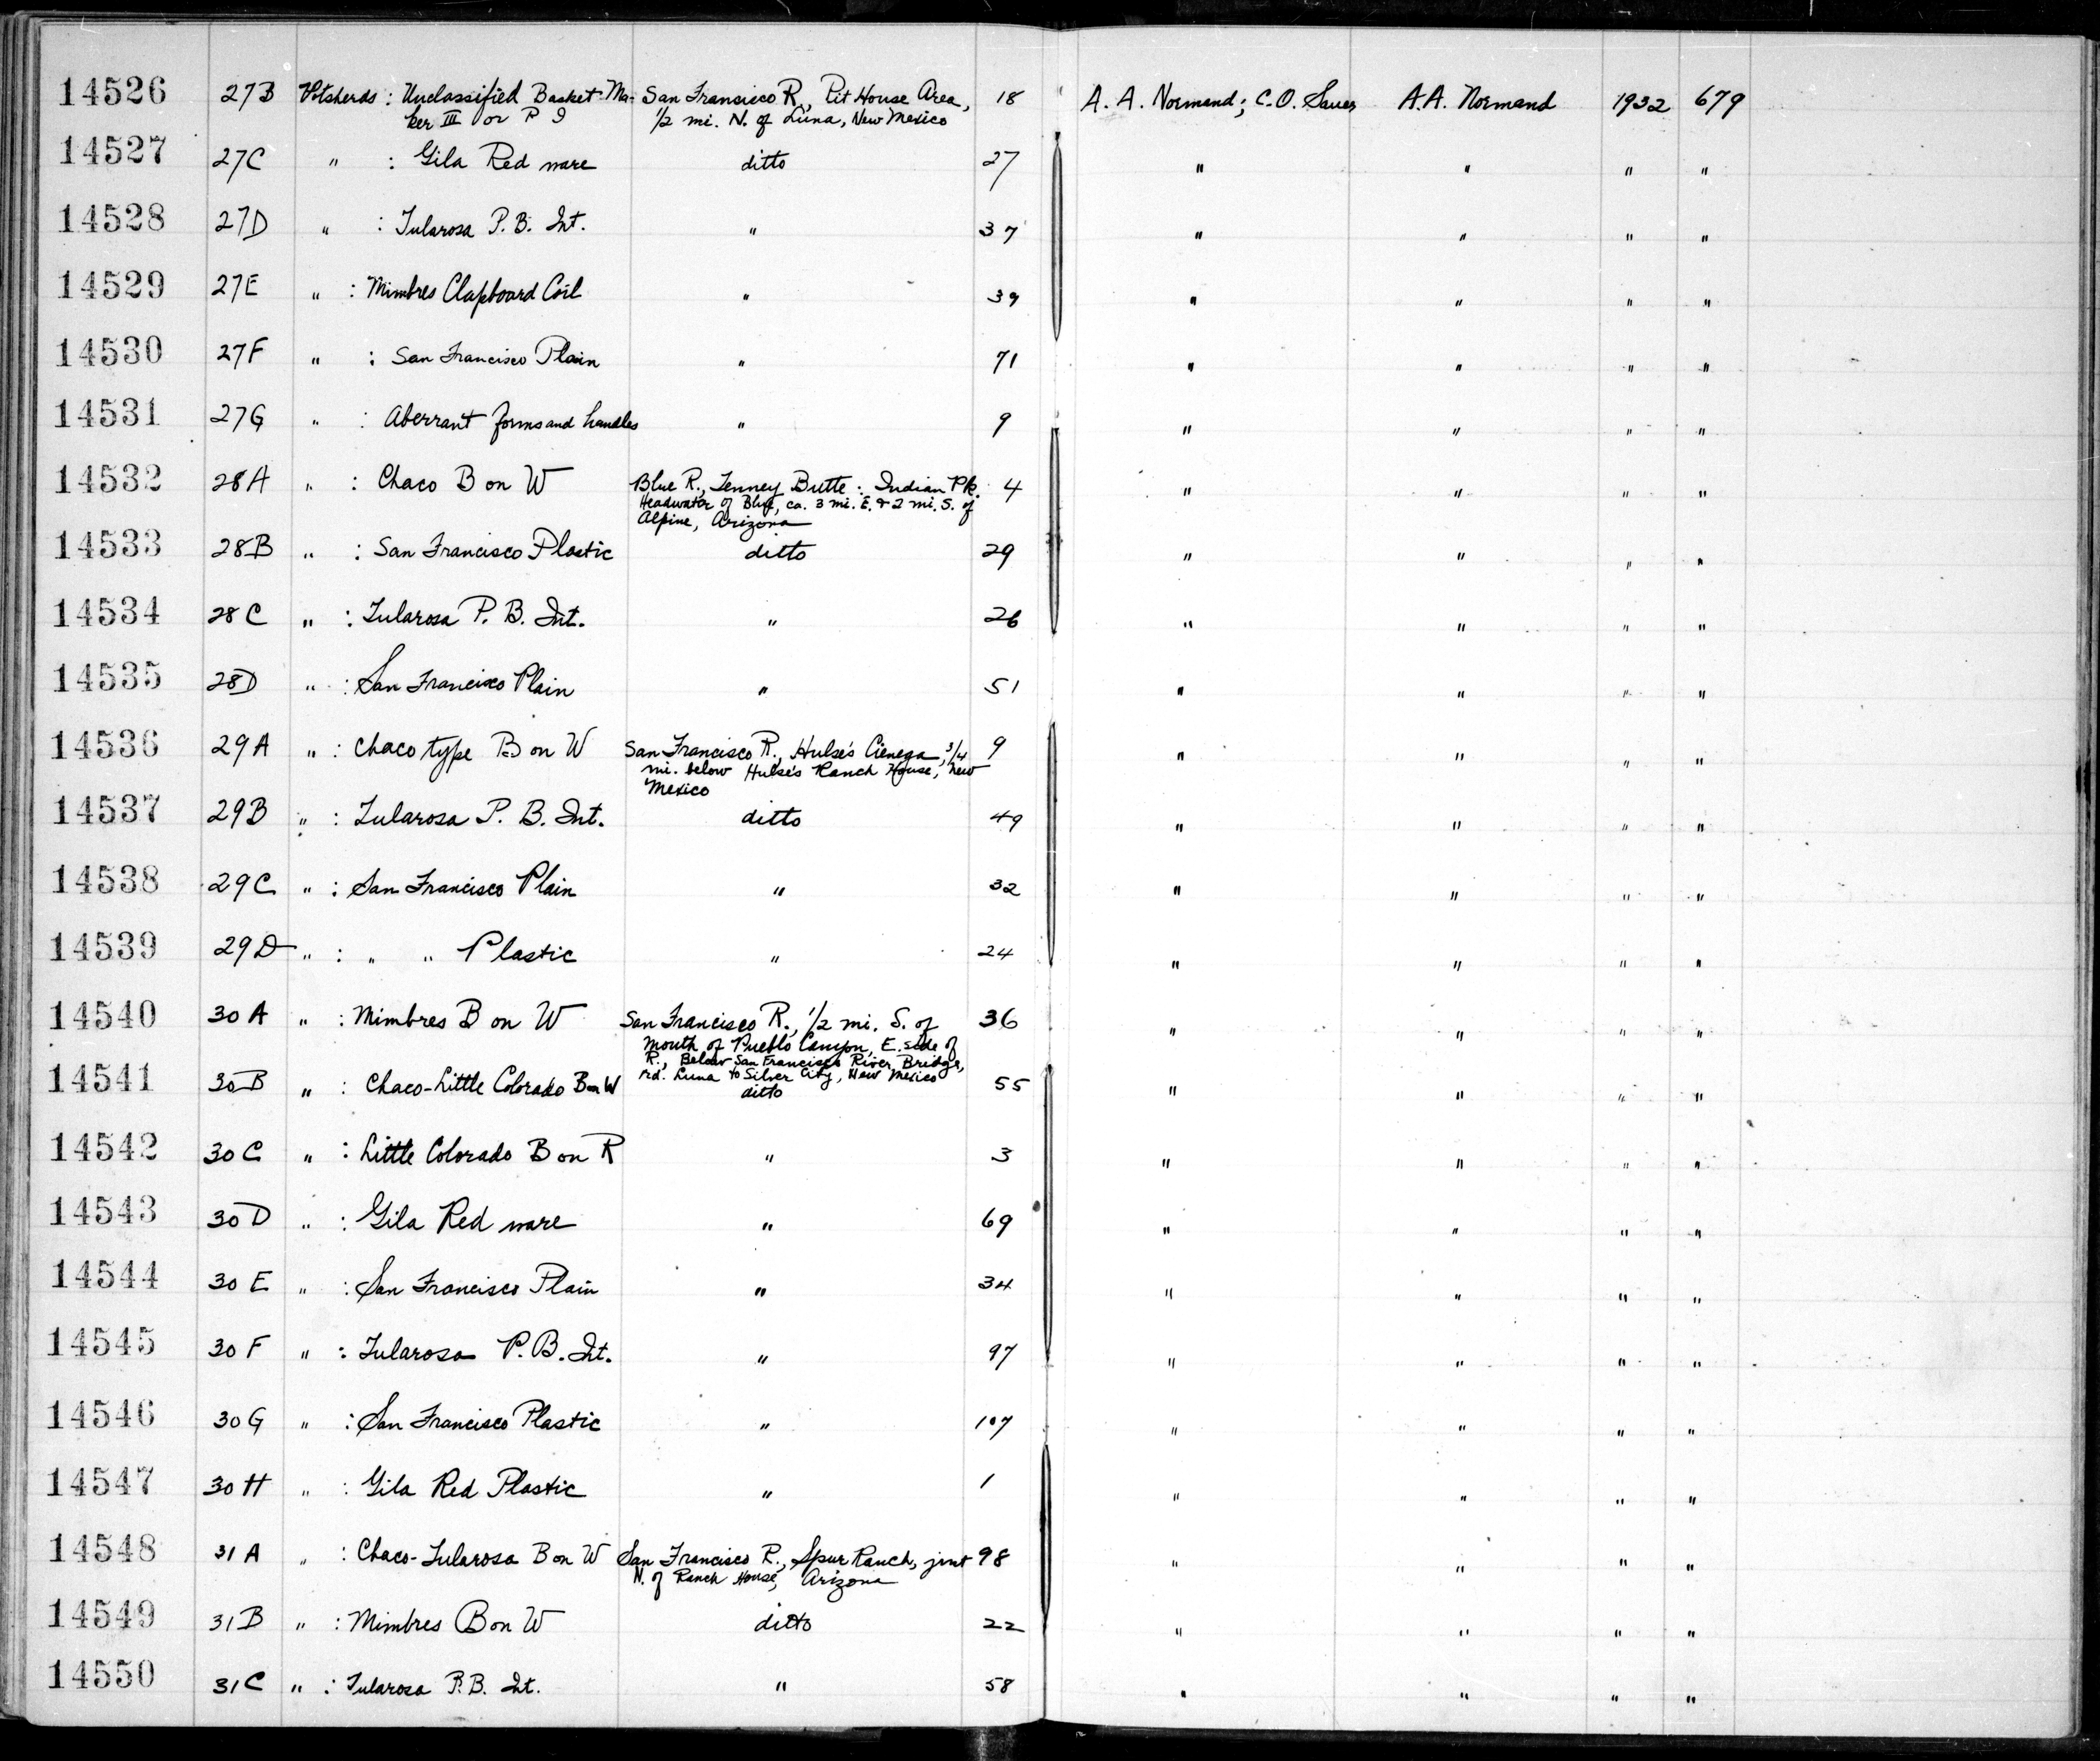 14526 27B Potsherds : Unclassified Basket-Ma- San Francisco R., Pit House Area, 18 A. A. Normand; C.O. Sauer A.A. Normand 1932 679
ker III or P I 1/2 mi. N. of Luna, New Mexico
14527 27C " : Gila Red ware ditto 27 " " " "
14528 27D " : Tularosa P. B. Int. " 37 " " " "
14529 27E " : Mimbres Clapboard Coil " 39 " " " "
14530 27F " : San Francisco Plain " 71 " " " "
14531 27G " : Aberrant forms and handles " 9 " " " "
14532 28A " : Chaco B on W Blue R., Tenney Butte : Indian Pk. 4 " " " "
Headwater of Blue, ca. 3 mi. E. & 2 mi. S. of
Alpine, Arizona
14533 28B " : San Francisco Plastic ditto 29 " " " "
14534 28C " : Tularosa P. B. Int. " 26 " " " "
14535 28D " : San Francisco Plain " 51 " " " "
14536 29A " : Chaco type B on W San Francisco R., Hulse's Cienega, 3/4 9 " " " "
mi. below Hulse's Ranch House, New
Mexico
14537 29B " : Tularosa P. B. Int. ditto 49 " " " "
14538 29C " : San Francisco Plain " 32 " " " "
14539 29D " : " " Plastic " 24 " " " "
14540 30A " : Mimbres B on W San Francisco R., 1/2 mi. S. of 36 " " " "
mouth of Pueblo Canyon, E. side of
R., Below San Francisco River Bridge,
rd. Luna to Silver City, New Mexico
14541 30B " : Chaco-Little Colorado B on W ditto 55 " " " "
14542 30C " : Little Colorado B on R " 3 " " " "
14543 30D " : Gila Red ware " 69 " " " "
14544 30E " : San Francisco Plain " 34 " " " "
14545 30F " : Tularosa P. B. Int. " 97 " " " "
14546 30G " : San Francisco Plastic " 107 " " " "
14547 30H " : Gila Red Plastic " 1 " " " "
14548 31A " : Chaco-Tularosa B on W San Francisco R., Spur Ranch, just 98 " " " "
N. of Ranch House, Arizona
14549 31B " : Mimbres B on W ditto 22 " " " "
14550 31C " : Tularosa P.B. Int. " 58 " " " "